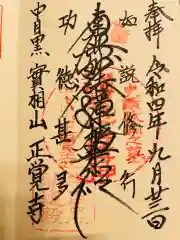 奉拝
令和四年九月廿三日
如説修行
南無妙法蓮華経
功徳甚多
中目黒 實相山 正覚寺